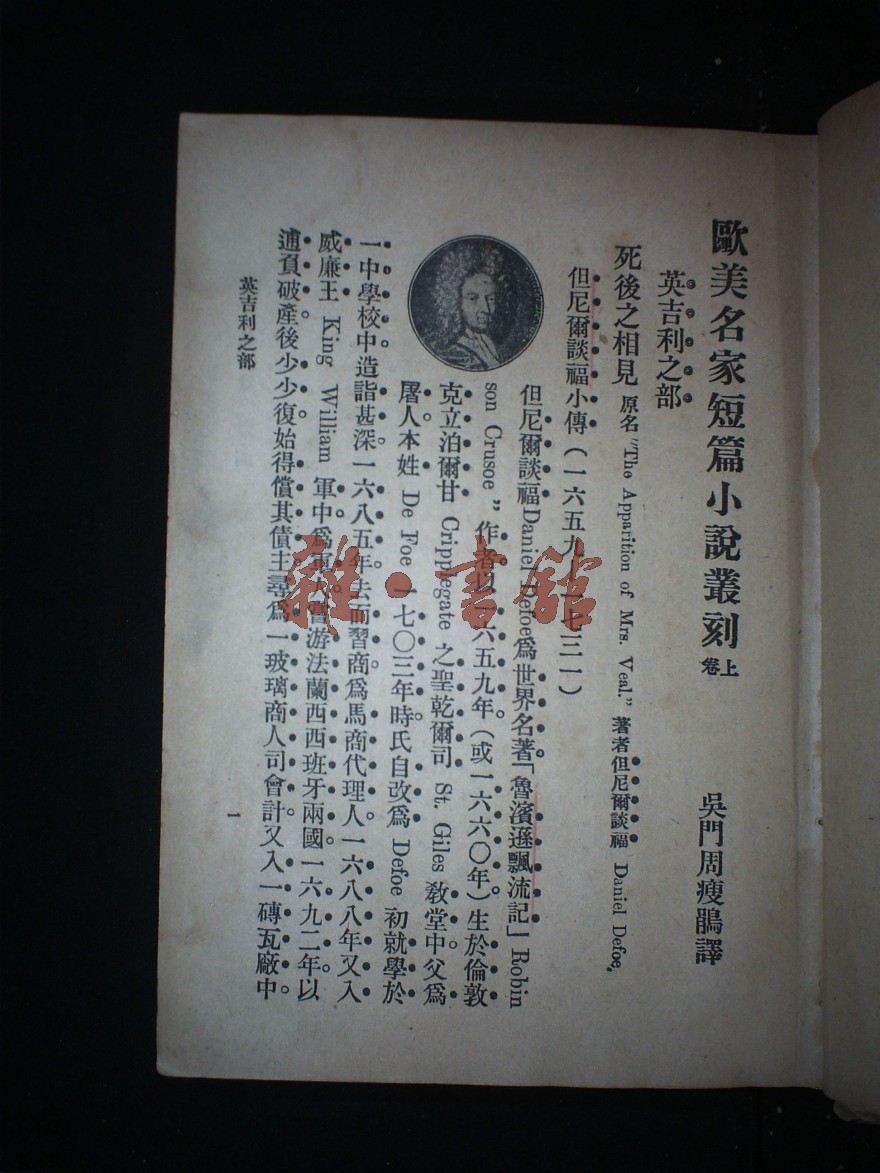 歐美名家短篇小說叢刻 上卷
吳門周瘦鵑譯
英吉利之部
死後之相見 原名 "The Apparition of Mrs. Veal." 著者但尼爾談福 Daniel Defoe.
但尼爾談福小傳（一六五九—一七三一）
但尼爾談福 Daniel Defoe 爲世界名著「魯濱遜飄流記」Robin
son Crusoe" 作者以一六五九年（或一六六〇年）生於倫敦
克立泊爾甘 Cripplegate 之聖乾爾司 St. Giles 敎堂中。父爲
屠人。本姓 De Foe 一七〇三年時氏自改爲 Defoe 初就學於
一中學校中造詣甚深。一六八五年去而習商爲馬商代理人。一六八八年又入
威廉王 King William 軍中爲軍人。嘗游法蘭西西班牙兩國。一六九二年以
逋負破產。後少少復始得償其債主。尋爲一玻璃商人司會計。又入一磚瓦廠中。
英吉利之部
一
雜·書館